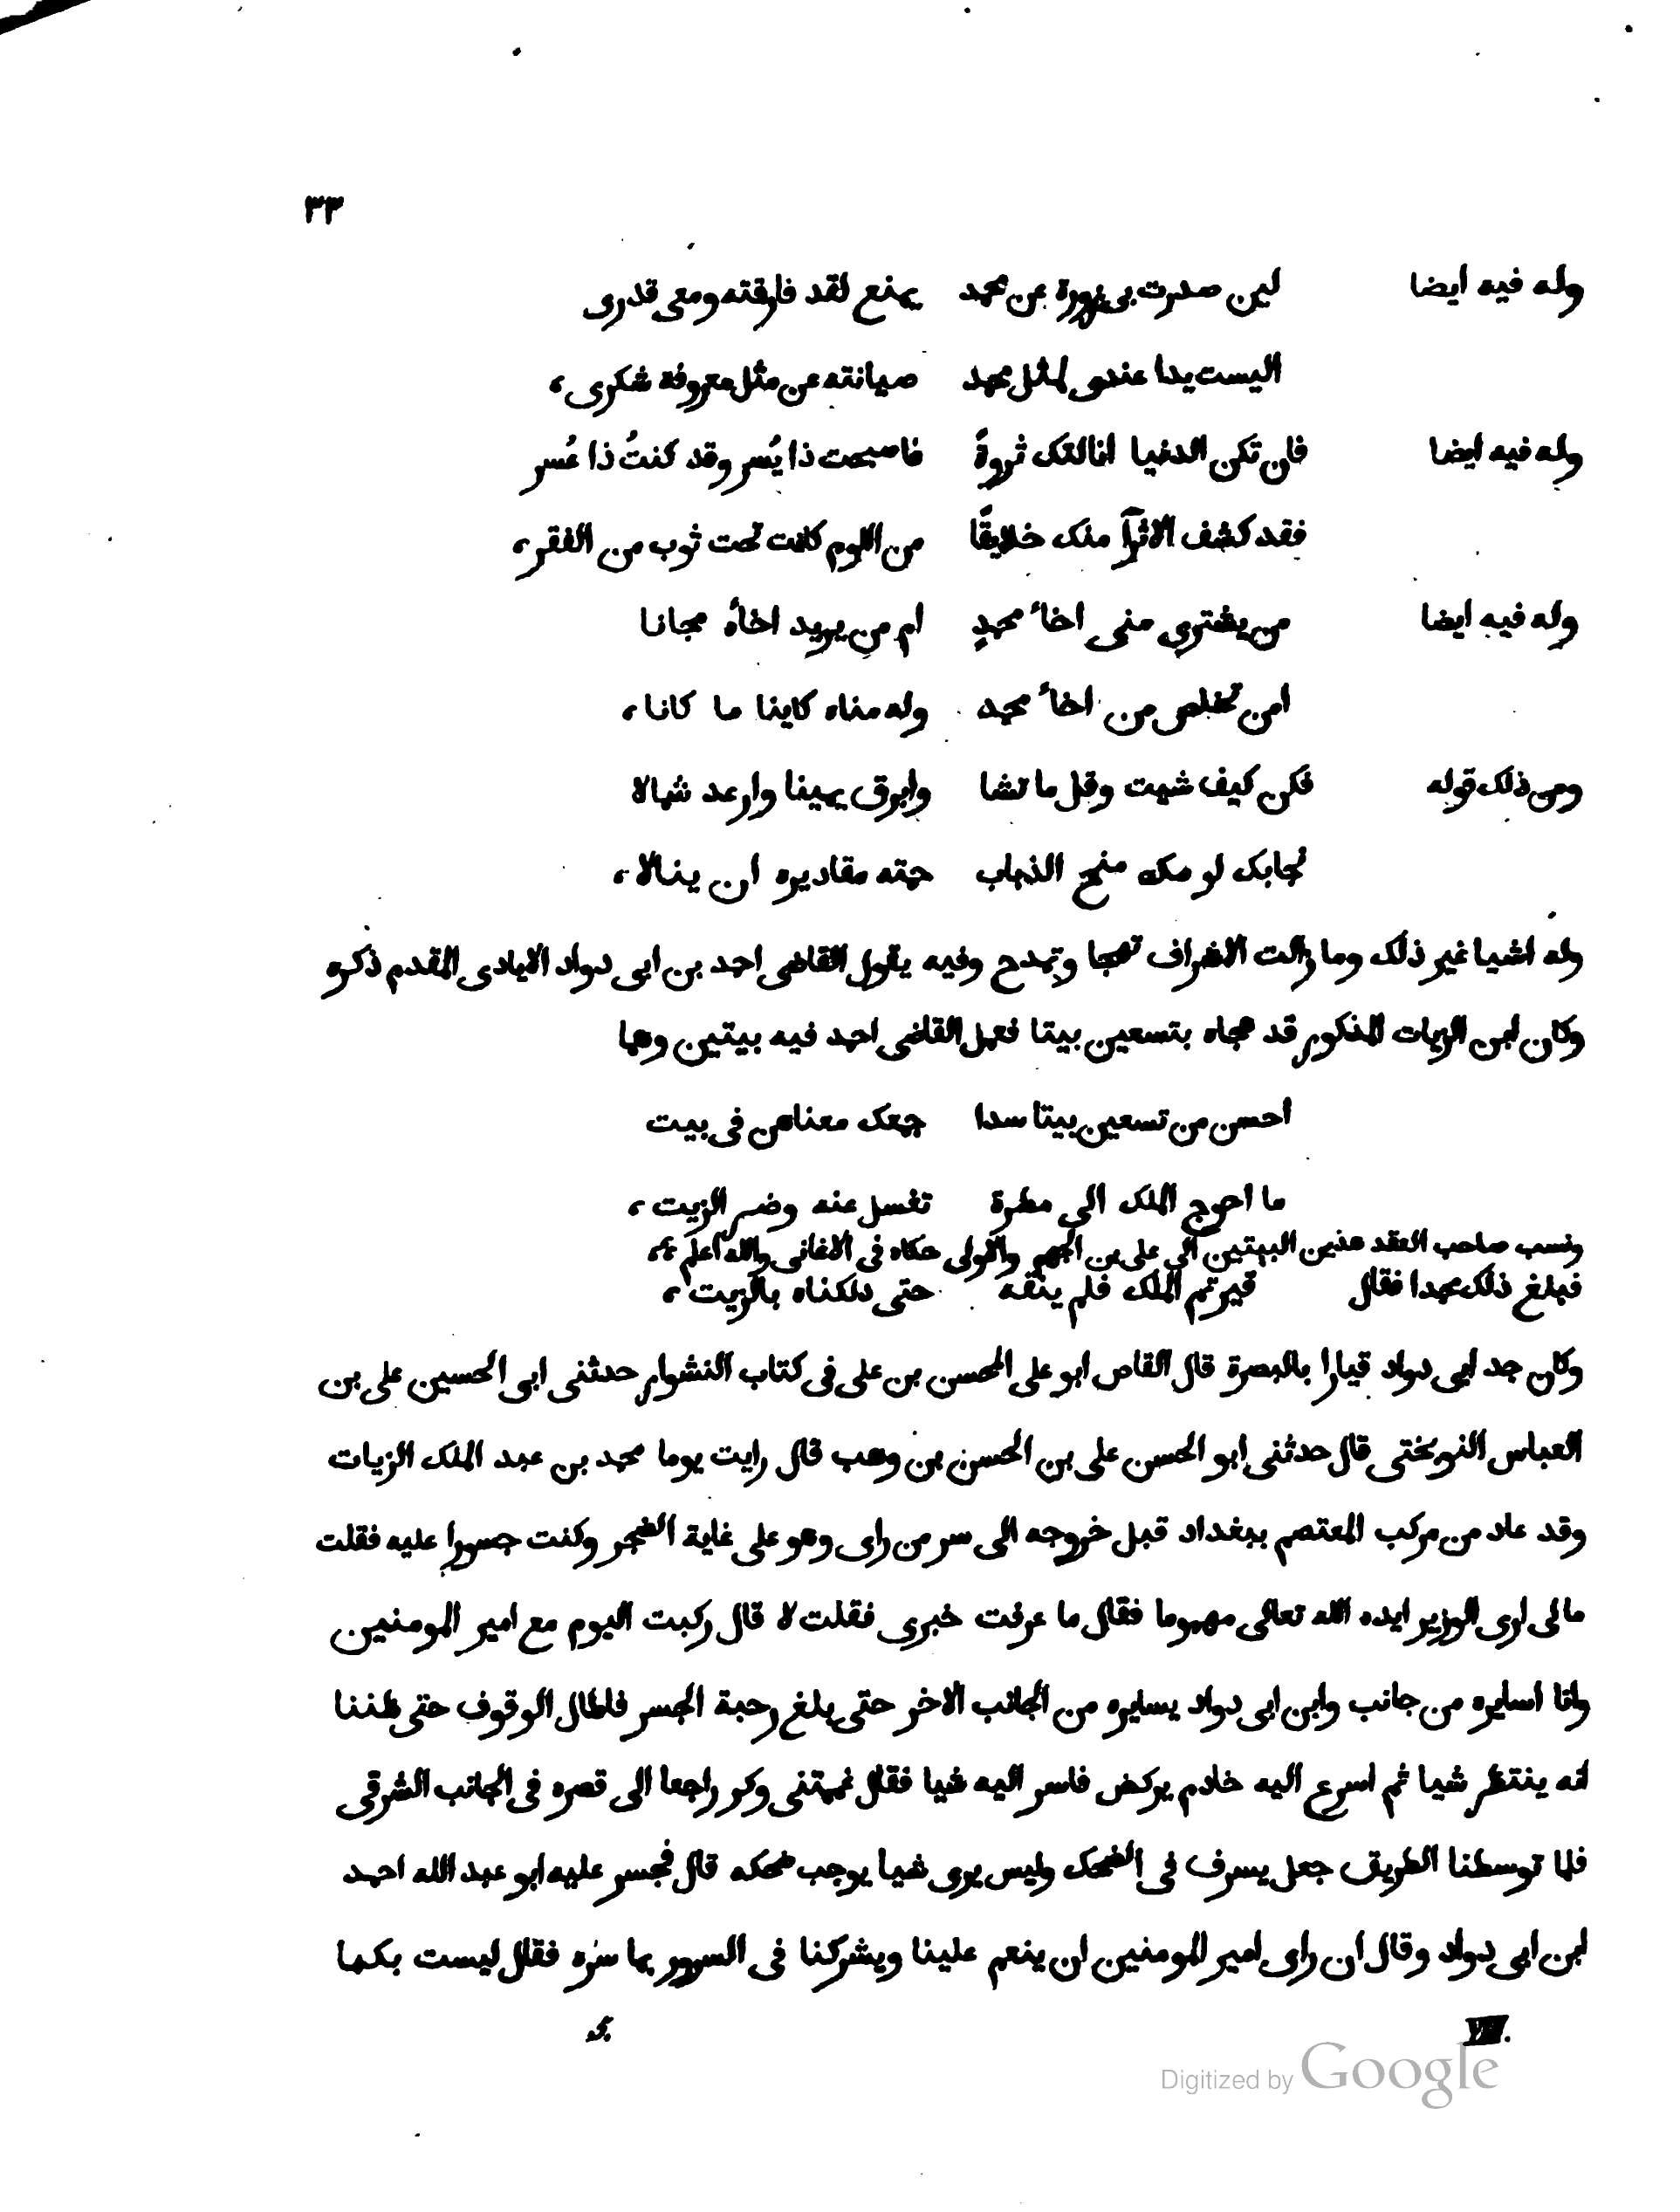 ٣٣
وله فيه ايضا لين صدرت بى زورة عن محمد يمنع لقد فارقته ومعى قدرى
اليست يدا عندى لمثل محمد صيانته عن مثل معروفة شكرى،
وله فيه ايضا فان تكن الدنيا انالتك ثروةً فاصبحت ذا يُسر وقد كنتُ ذا عُسر
فقد كشف الاثرآ منك خلايقًا من اللوم كانت تحت ثوب من الفقر،
وله فيه ايضا من يشترى منى اخاءَ محمدٍ ام من يريد اخاءه مجانا
امن تخلص من اخاءَ محمد وله مناه كاينا ما كانا،
ومن ذلك قوله فكن كيف شيت وقل ما تشا وابرق يمينا وارعد شمالا
نجابك لو مك منجى الذباب حمته مقاديره ان ينالا،
وله اشيا غير ذلك وما زالت الاشراف تهجا وتمدح وفيه يقول القاضى احمد بن ابى دواد الايادى المقدم ذكره
وكان ابن الزيات المذكور قد هجاه بتسعين بيتا فعمل القاضى احمد فيه بيتين وهما
احسن من تسعين بيتا سدا جمعك معناهن فى بيت
ما احوج الملك الى مطرة تغسل عنه وضر الزيت،
ونسب صاحب العقد هذين البيتين الى على بن الجهم والاولى حكاه فى الاغانى والله اعلم،
فبلغ ذلك محمدا فقال قيرتم الملك فلم ينقه حتى دلكناه بالزيت،
وكان جد ابى دواد قيارا بالبصرة قال القاص ابو على المحسن بن على فى كتاب النشوار حدثنى ابى الحسين على بن
العباس النوبختى قال حدثنى ابو الحسن على بن الحسن بن وهب قال رايت يوما محمد بن عبد الملك الزيات
وقد عاد من مركب المعتصم ببغداد قبل خروجه الى سر من راى وهو على غاية الضجر وكنت جسورا عليه فقلت
مالى ارى الوزير ايده الله تعالى مهموما فقال ما عرفت خبرى فقلت لا قال ركبت اليوم مع امير المومنين
وانا اسايره من جانب وابن ابى دواد يسايره من الجانب الاخر حتى بلغ رحبة الجسر فاطال الوقوف حتى ظننا
انه ينتظر شيا ثم اسرع اليه خادم يركض فاسر اليه شيا فقال غممتنى وكر راجعا الى قصره فى الجانب الشرقى
فلما توسطنا الطريق جعل يسرف فى الضحك وليس يرى شيا يوجب ضحكه قال فجسر عليه ابو عبد الله احمد
ابن ابى دواد وقال ان راى امير المومنين ان ينعم علينا ويشركنا فى السرور بما سره فقال ليست بكما
VIII. 5.
Digitized by Google